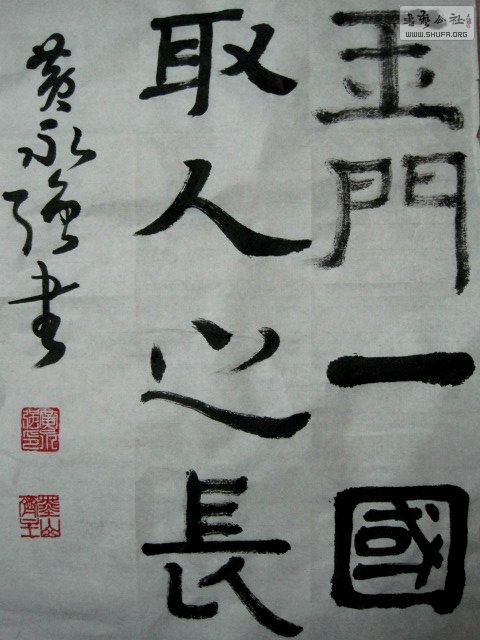 玉門一國
取人之長
黄永強书
書藝公社
WWW.SHUFA.ORG